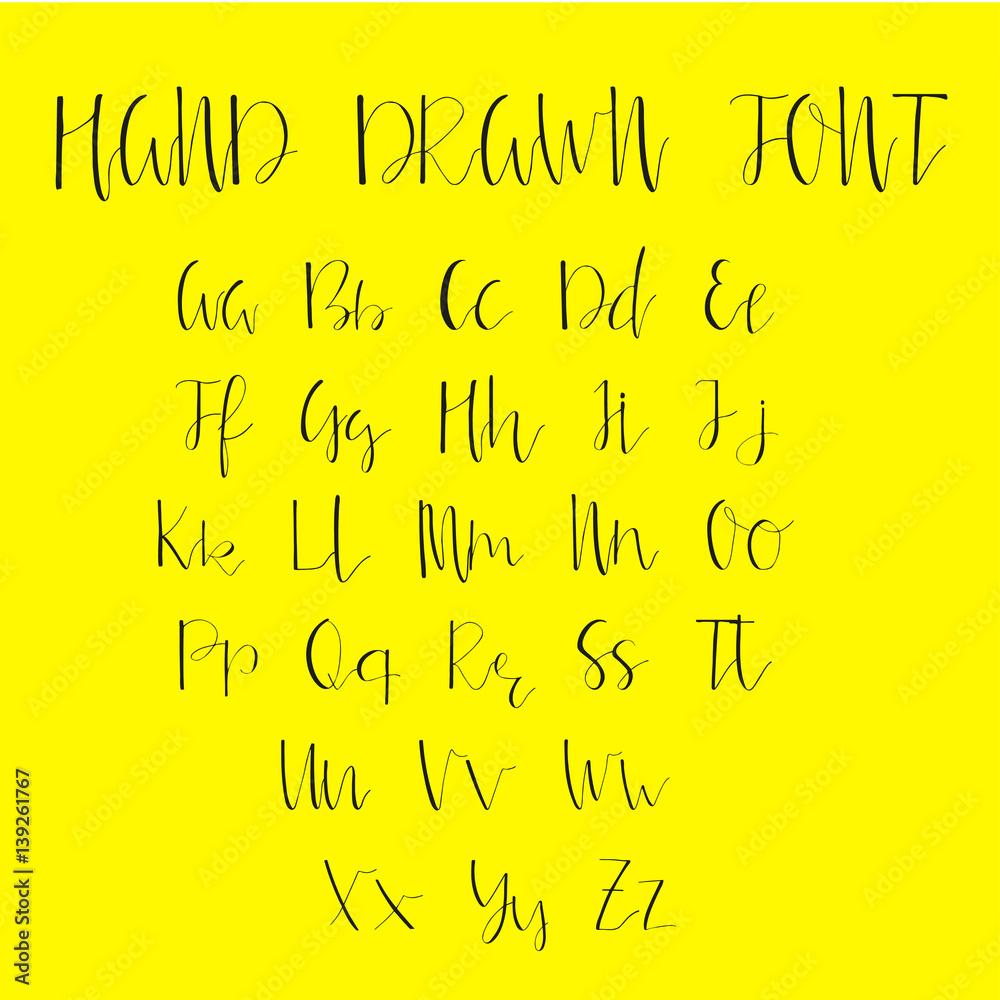 HAND DRAWN FONT
Aa Bb Cc Dd Ee
Ff Gg Hh Ii Jj
Kk Ll Mm Nn Oo
Pp Qq Rr Ss Tt
Uu Vv Ww
Xx Yy Zz
Adobe Stock | #139261767